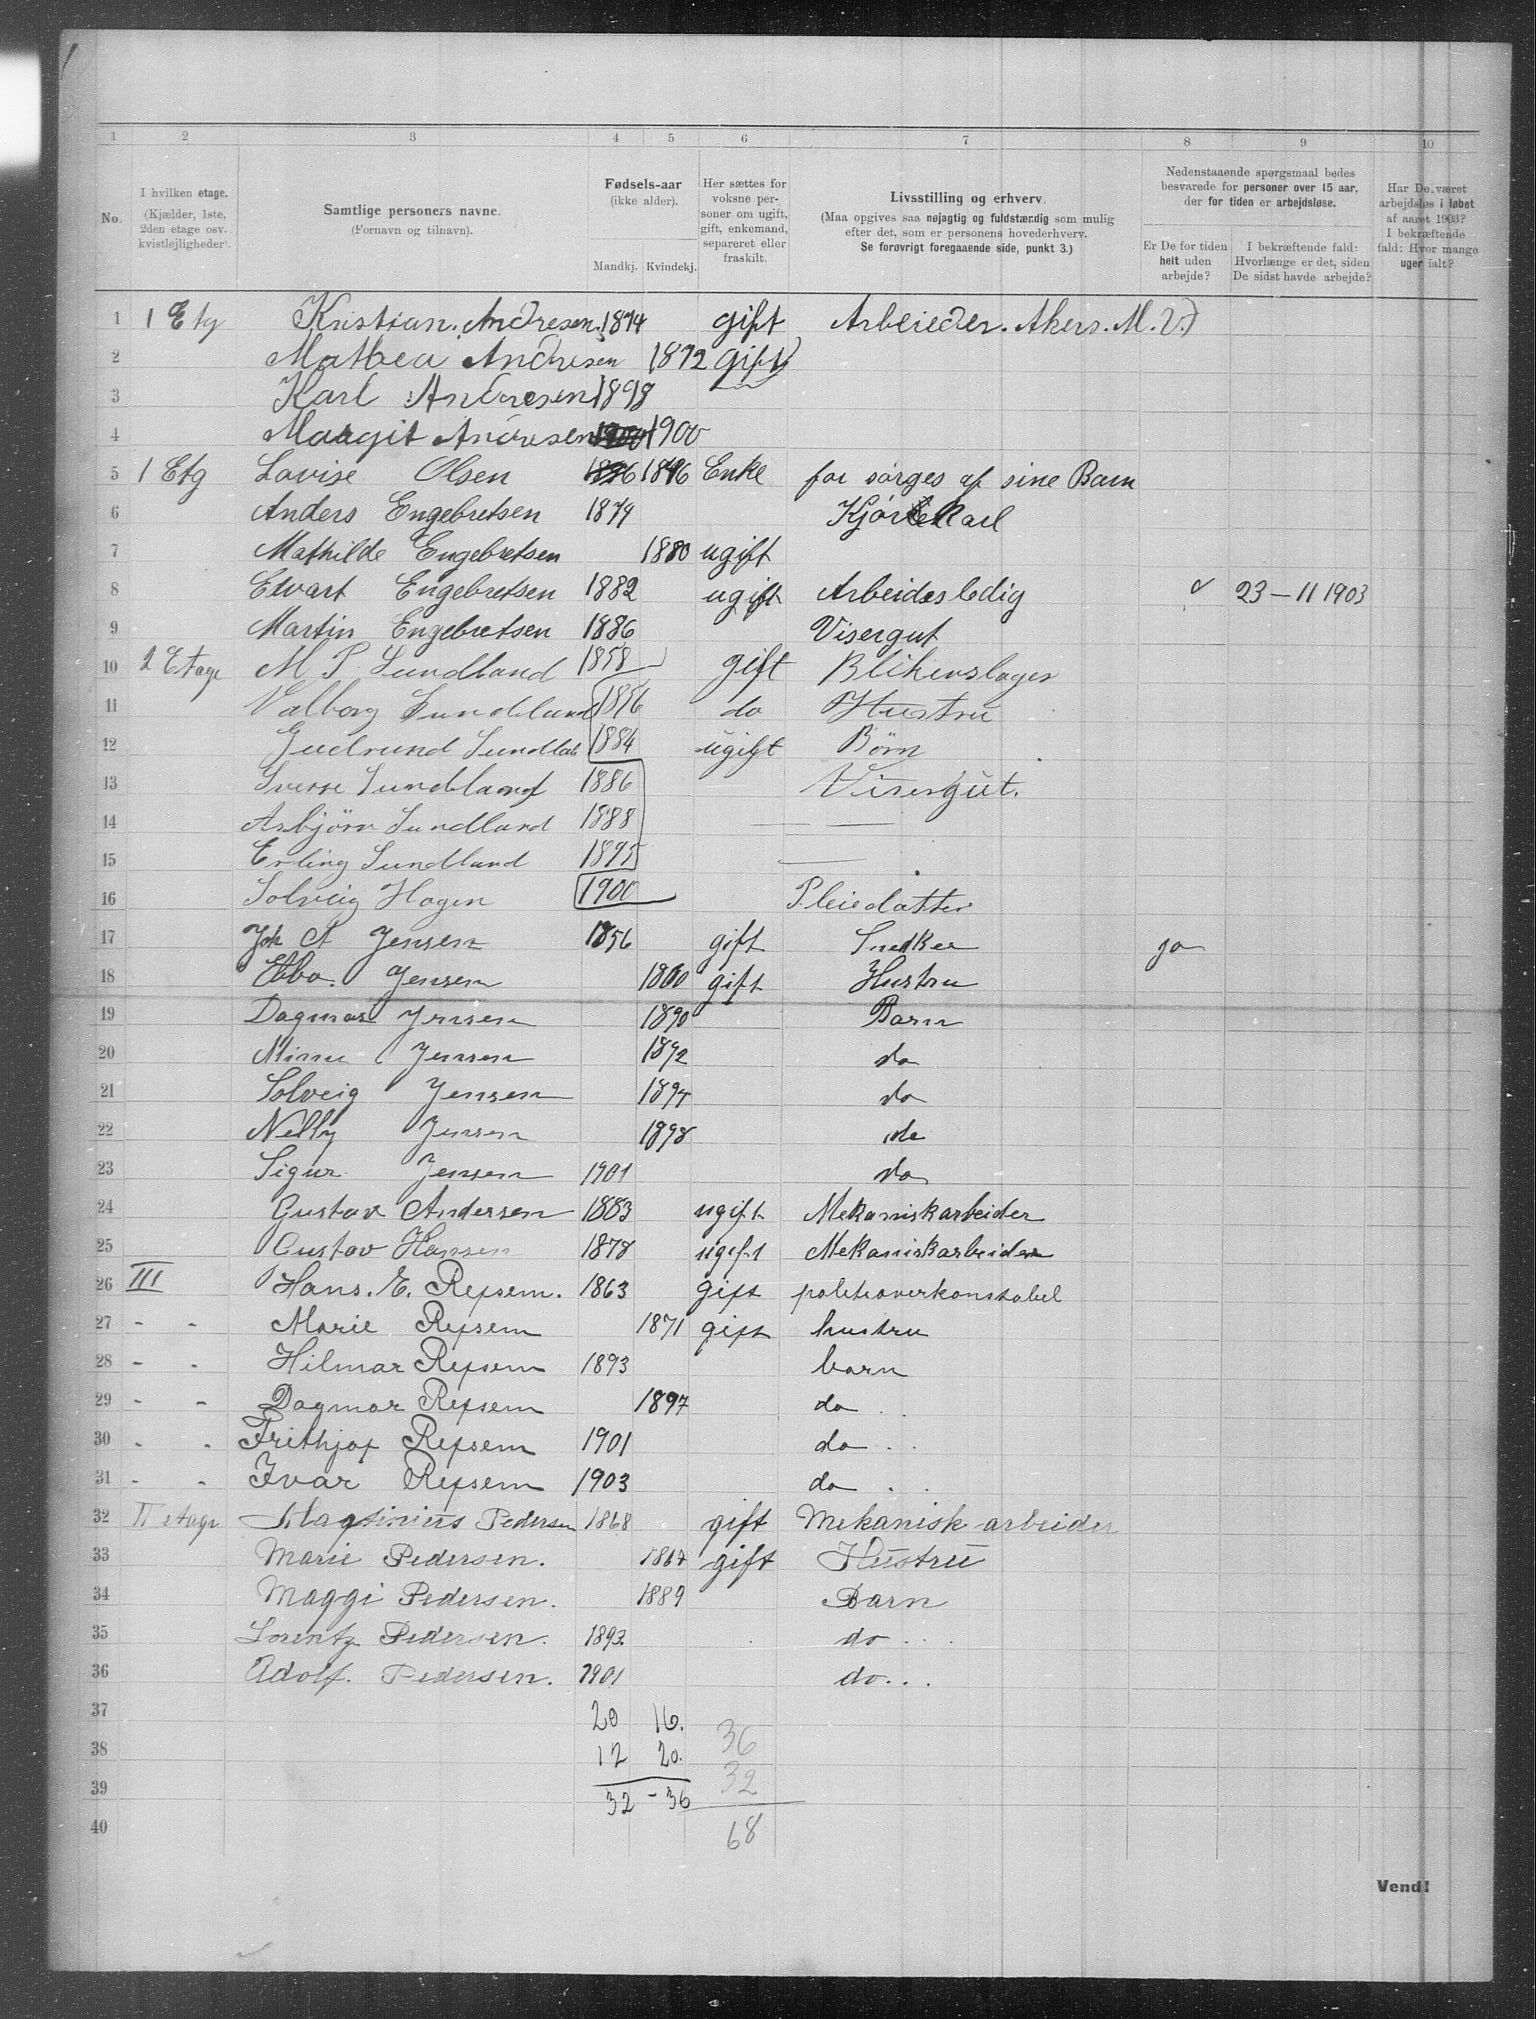 1 2 3 4 5 6 7 8 9 10
No.
I hvilken etage. (Kjælder, 1ste, 2den etage osv. kvistlejligheder).
Samtlige personers navne. (Fornavn og tilnavn).
Fødsels-aar (ikke alder).
Mandkj. Kvindekj.
Her sættes for voksne personer om ugift, gift, enkemand, separeret eller fraskilt.
Livsstilling og erhverv.
(Maa opgives saa nøjagtig og fuldstændig som mulig efter det, som er personens hovederhverv.
Se forøvrigt foregaaende side, punkt 3.)
Nedenstaaende spørgsmaal bedes besvarede for personer over 15 aar, der for tiden er arbejdsløse.
Er De for tiden helt uden arbejde?
I bekræftende fald: Hvorlænge er det, siden De sidst havde arbejde?
Har De været arbejdsløs i løbet af aaret 1903? I bekræftende fald: Hvor mange uger ialt?
1 1 Etg Kristian. Andresen. 1874 gift Arbeieder. Akers. M. V.
2 Mathea Andresen 1872 gift
3 Karl Andresen 1898
4 Margit Andresen 1900
5 1 Etg Lovise Olsen 1846 Enke for sørges af sine Barn
6 Anders Engebretsen 1879 Kjørekarl
7 Mathilde Engebretsen 1880 ugift
8 Edvart Engebretsen 1882 ugift Arbeidesledig 23 - 11 1903
9 Martin Engebretsen 1886 Visergut
10 2 Etage M P Sundland 1858 gift Blikenslager
11 Valborg Sundland 1856 do Hustru
12 Gudrund Sundland 1884 ugift Børn
13 Sverre Sundland 1886 Visergut.
14 Asbjørn Sundland 1888 — —
15 Erling Sundland 1895 —
16 Solveig Hagen 1900 Pleiedatter
17 Joh A Jensen 1856 gift Snedker ja
18 Ebba. Jensen 1860 gift Hustru
19 Dagmar Jensen 1890 Barn
20 Minni Jensen 1892 do
21 Solveig Jensen 1894 do
22 Nelly Jensen 1898 do
23 Sigur Jensen 1901 do
24 Gustav Andersen 1883 ugift Mekaniskarbeider
25 Gustav Hansen 1878 ugift Mekaniskarbeider
26 III Hans. E. Refsem. 1863 gift politioverkonstabel
27 - - Marie Refsem 1871 gift hustru
28 - - Hilmar Refsem 1893 barn
29 - - Dagmar Refsem 1897 do
30 - - Frithjof Refsem 1901 do
31 - - Ivar Refsem 1903 do
32 II etage Martinius Pedersen 1868 gift Mekanisk arbeider
33 Marie Pedersen. 1867 gift Hustru
34 Maggi Pedersen. 1889 Barn
35 Lorentz Pedersen. 1893 do
36 Adolf. Pedersen. 1901 do
37 20 16.
38 12 20. 36
39 32 - 36 32
40 68
Vend!